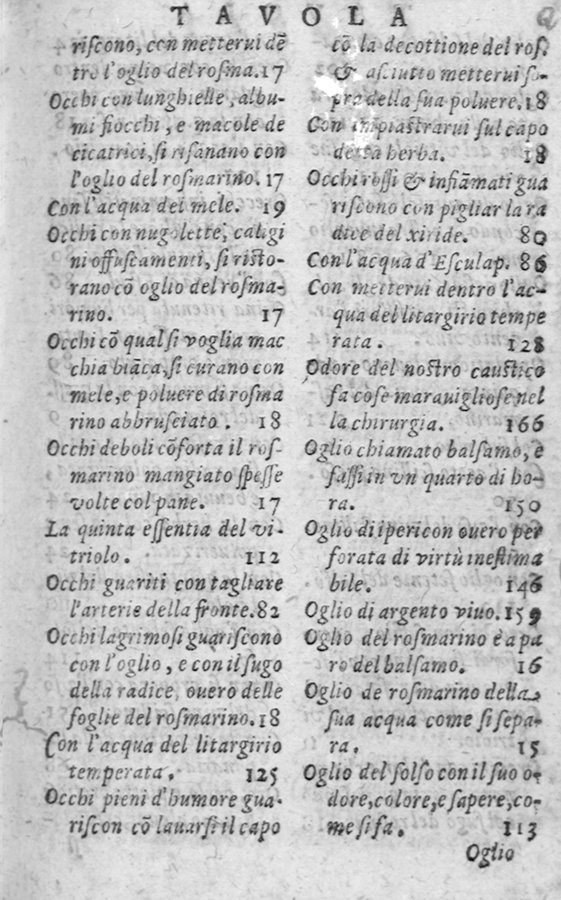 TAVOLA
riſcono, con metterui dẽ
tro l'oglio del roſma. 17
Occhi con lunghielle, albu-
mi fiocchi, e macole de
cicatrici, ſi riſanano con
l'oglio del roſmarino. 17
Con l'acqua del mele. 19
Occhi con nugolette, caligi
ni offuſcamenti, ſi riſto-
rano cõ oglio del roſma-
rino. 17
Occhi cõ qual ſi voglia mac
chia biãca, ſi curano con
mele, e poluere di roſma
rino abbruſciato. 18
Occhi deboli cõforta il roſ-
marino mangiato ſpeſſe
volte col pane. 17
La quinta eſſentia del vi-
triolo. 112
Occhi guariti con tagliare
l'arterie della fronte. 82
Occhi lagrimoſi guariſcono
con l'oglio, e con il ſugo
della radice, ouero delle
foglie del roſmarino. 18
Con l'acqua del litargirio
temperata. 125
Occhi pieni d'humore gua-
riſcon cõ lauarſi il capo
cõ la decottione del roſ.
& aſciutto metterui ſo-
pra della ſua poluere. 18
Con impiaſtrarui ſul capo
detta herba. 18
Occhi roſſi & infiãmati gua
riſcono con pigliar la ra
dice del xiride. 80
Con l'acqua d'Eſculap. 86
Con metterui dentro l'ac-
qua del litargirio tempe
rata. 128
Odore del noſtro cauſtico
fa coſe marauiglioſe nel
la chirurgia. 166
Oglio chiamato balſamo, e
faſſi in vn quarto di ho-
ra. 150
Oglio di ipericon ouero per
forata di virtù ineſtima
bile. 146
Oglio di argento viuo. 159
Oglio del roſmarino è a pa
ro del balſamo. 16
Oglio de roſmarino della
ſua acqua come ſi ſepa-
ra. 15
Oglio del ſolfo con il ſuo o-
dore, colore, e ſapere, co-
me ſi fa. 113
Oglio